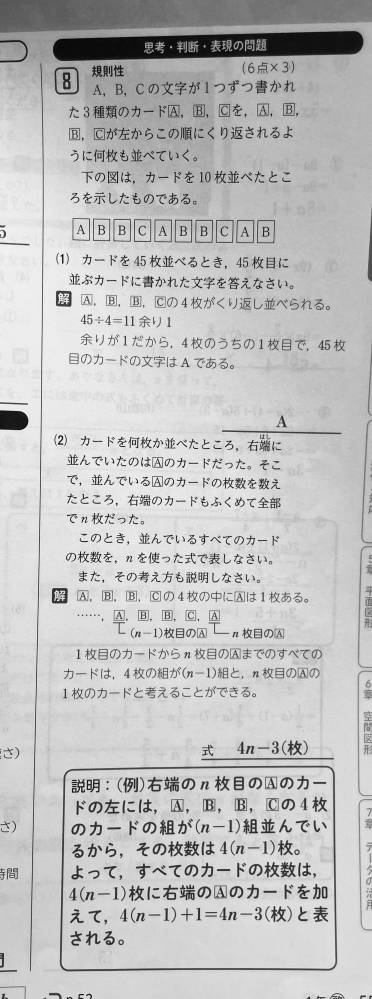 思考・判断・表現の問題
8 規則性 (6点×3)
A, B, Cの文字が1つずつ書かれ
た3種類のカードA, B, Cを, A, B,
B, Cが左からこの順にくり返されるよ
うに何枚も並べていく。
下の図は, カードを10枚並べたとこ
ろを示したものである。
A B B C A B B C A B
(1) カードを45枚並べるとき, 45枚目に
並ぶカードに書かれた文字を答えなさい。
解 A, B, B, Cの4枚がくり返し並べられる。
45÷4=11余り1
余りが1だから, 4枚のうちの1枚目で, 45枚
目のカードの文字はAである。
A
(2) カードを何枚か並べたところ, 右端に
はし
並んでいたのはAのカードだった。そこ
で, 並んでいるAのカードの枚数を数え
たところ, 右端のカードもふくめて全部
でn枚だった。
このとき, 並んでいるすべてのカード
の枚数を, nを使った式で表しなさい。
また, その考え方も説明しなさい。
解 A, B, B, Cの4枚の中にAは1枚ある。
……, A, B, B, C, A
(n-1)枚目のA n枚目のA
1枚目のカードからn枚目のAまでのすべての
カードは, 4枚の組が(n-1)組と, n枚目のAの
1枚のカードと考えることができる。
式 4n-3(枚)
説明:(例)右端のn枚目のAのカー
ドの左には, A, B, B, Cの4枚
のカードの組が(n-1)組並んでい
るから, その枚数は4(n-1)枚。
よって, すべてのカードの枚数は,
4(n-1)枚に右端のAのカードを加
えて, 4(n-1)+1=4n-3(枚)と表
される。
5
速さ)
さ)
時間
平面図形
6章 空間図形
7章 データの活用
p.52